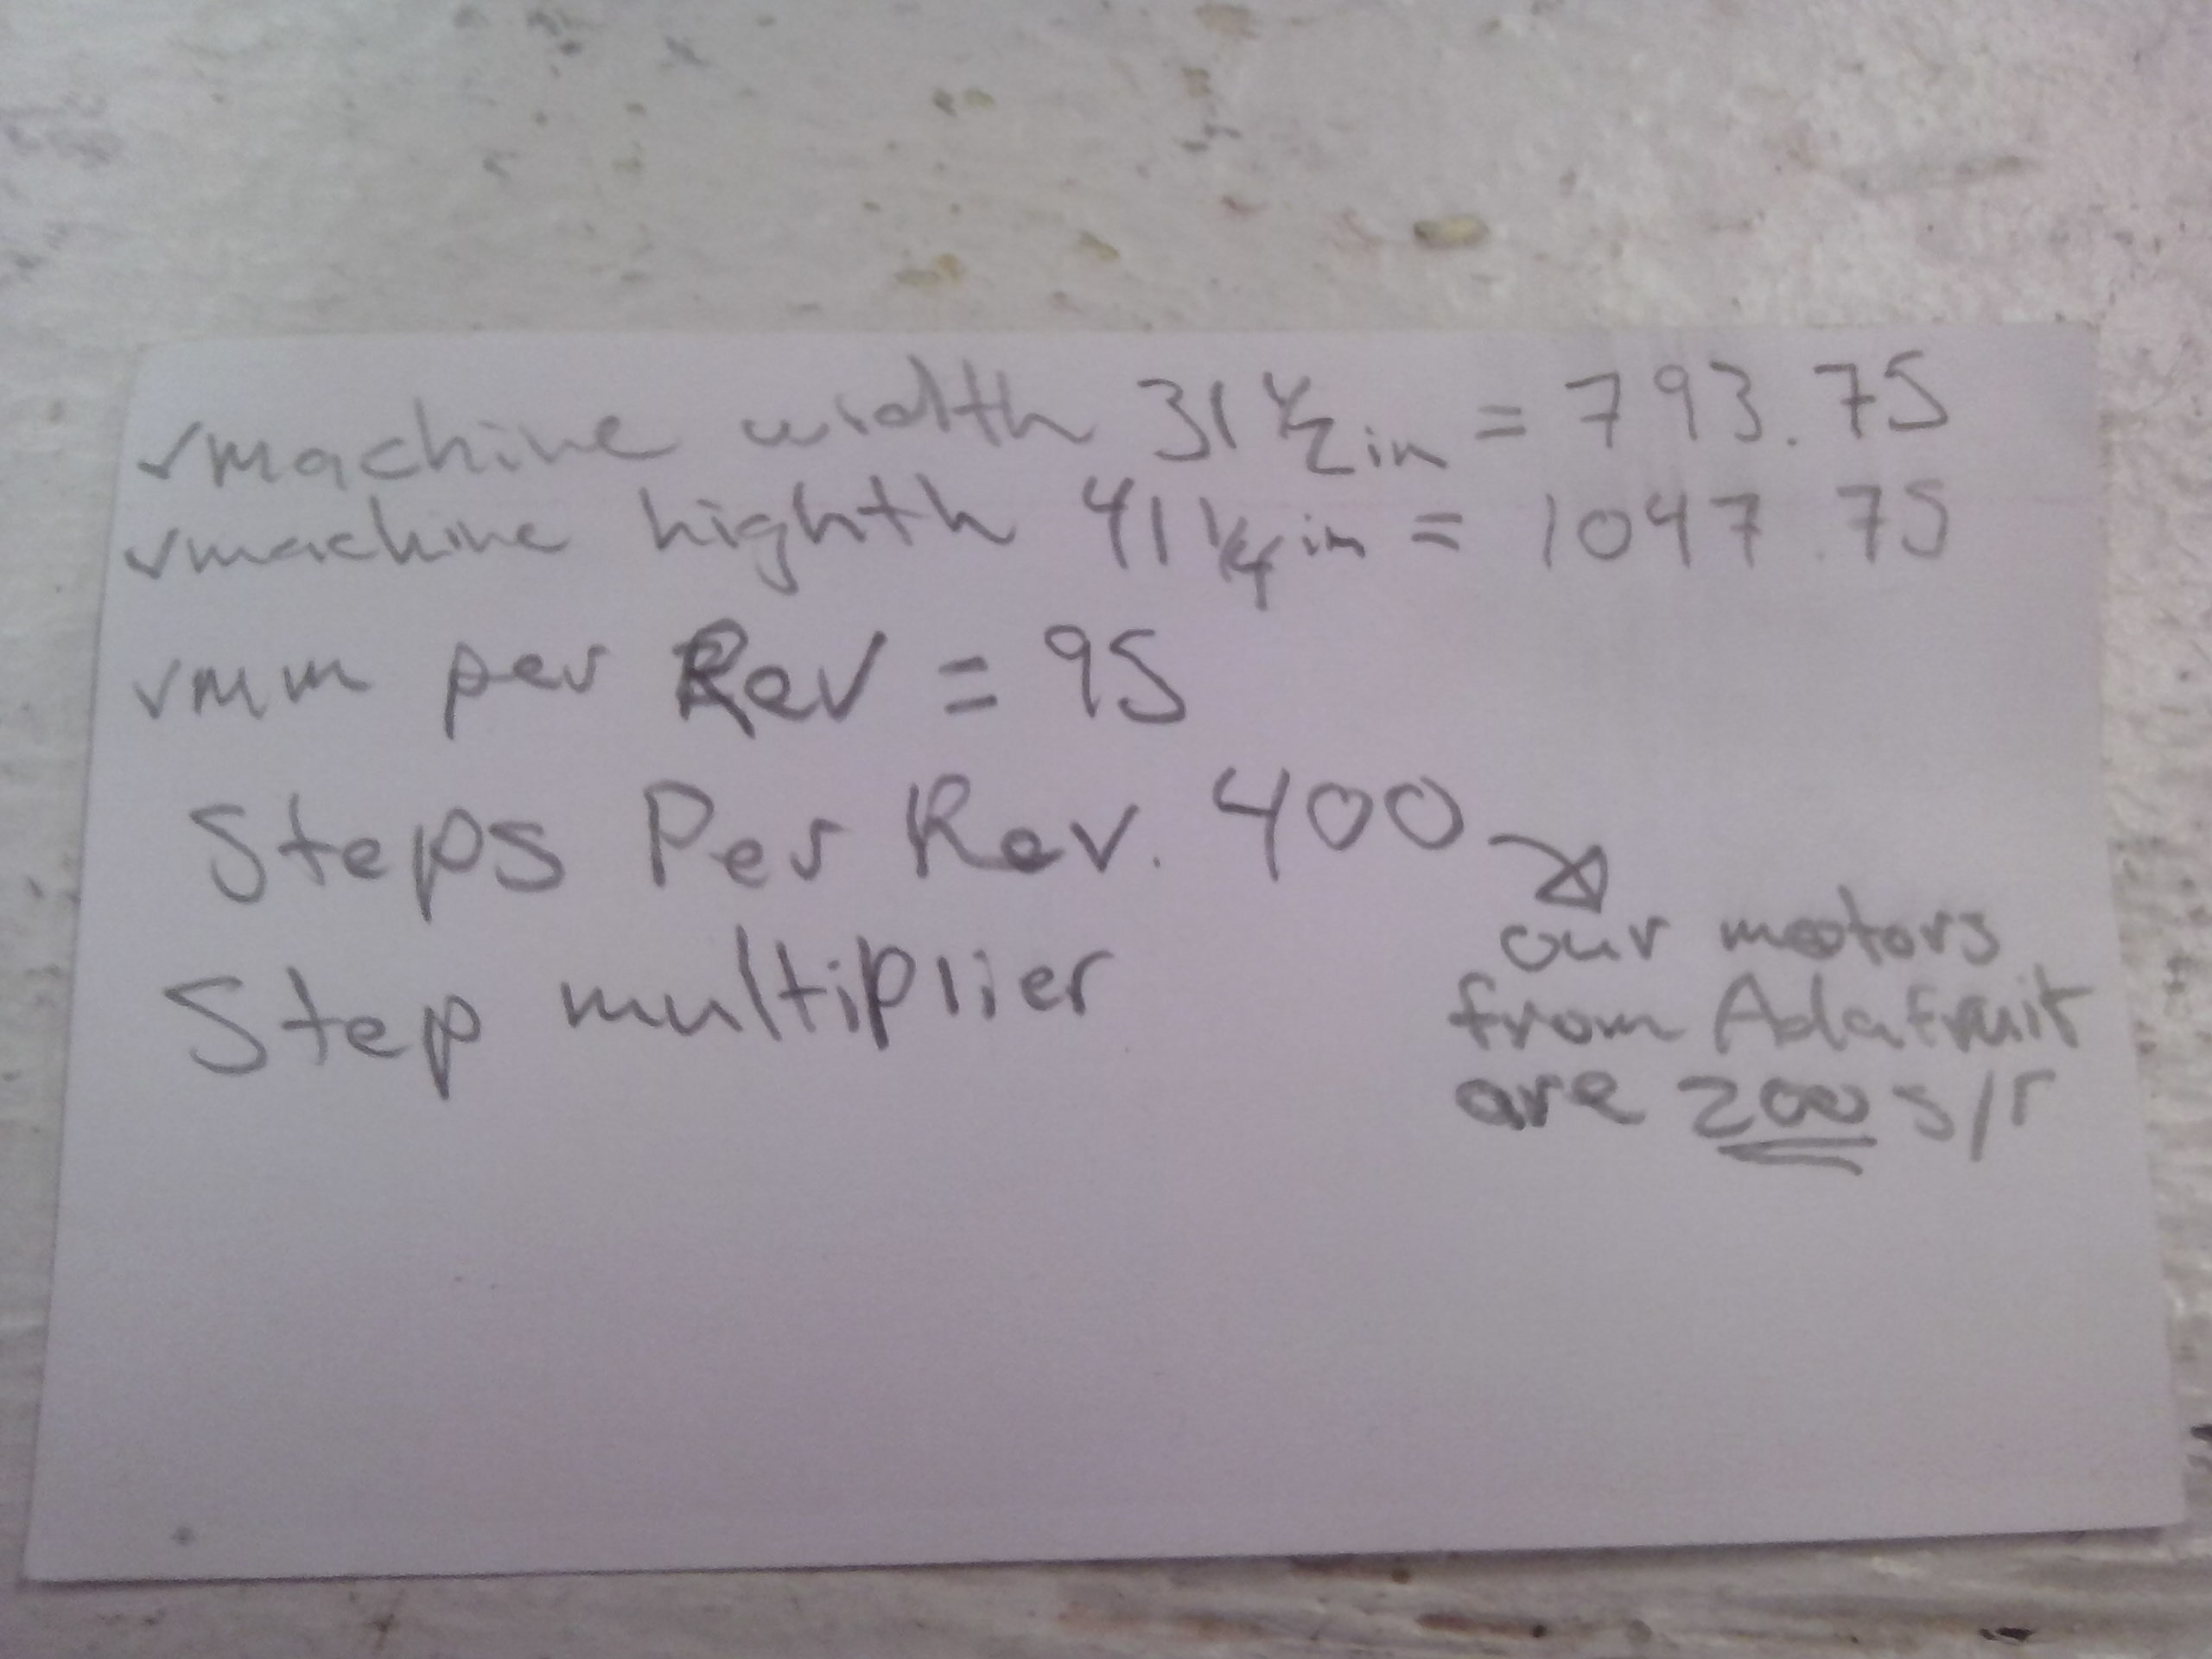 ✓machine width 31 1/2 in = 793.75
✓machine highth 41 1/4 in = 1047.75
✓mm per Rev = 95
Steps Per Rev. 400
our mootors
from Adafruit
are 200 s/r
Step multiplier